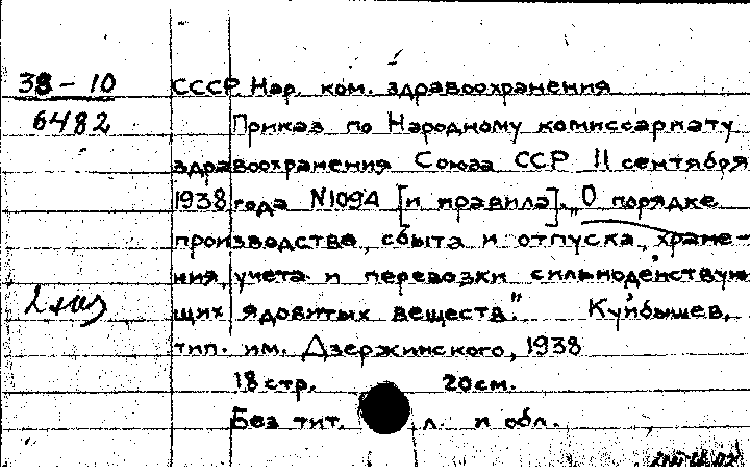 38 – 10
6482
СССР. Нар. ком. здравоохранения
Приказ по Народному комиссариату
здравоохранения Союза ССР 11 сентября
1938 года N 109А [и правила]. „О порядке
производства, сбыта и отпуска, хране-
ния, учета и перевозки сильнодействую-
щих ядовитых веществ." Куйбышев,
тип. им. Дзержинского, 1938
18 стр. 20 см.
Без тит. л. и обл.